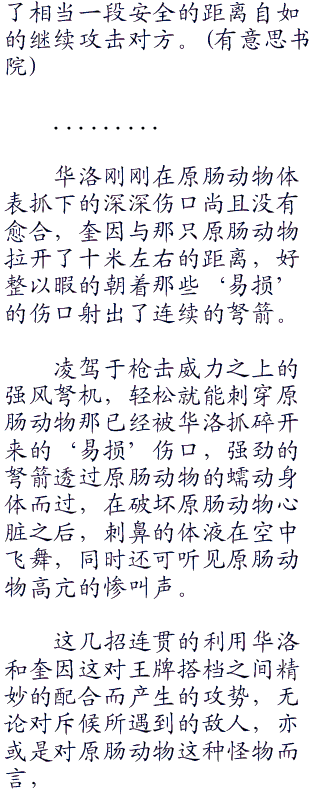 了相当一段安全的距离自如
的继续攻击对方。(有意思书
院)
.........
华洛刚刚在原肠动物体
表抓下的深深伤口尚且没有
愈合，奎因与那只原肠动物
拉开了十米左右的距离，好
整以暇的朝着那些‘易损’
的伤口射出了连续的弩箭。
凌驾于枪击威力之上的
强风弩机，轻松就能刺穿原
肠动物那已经被华洛抓碎开
来的‘易损’伤口，强劲的
弩箭透过原肠动物的蠕动身
体而过，在破坏原肠动物心
脏之后，刺鼻的体液在空中
飞舞，同时还可听见原肠动
物高亢的惨叫声。
这几招连贯的利用华洛
和奎因这对王牌搭档之间精
妙的配合而产生的攻势，无
论对斥候所遇到的敌人，亦
或是对原肠动物这种怪物而
言，